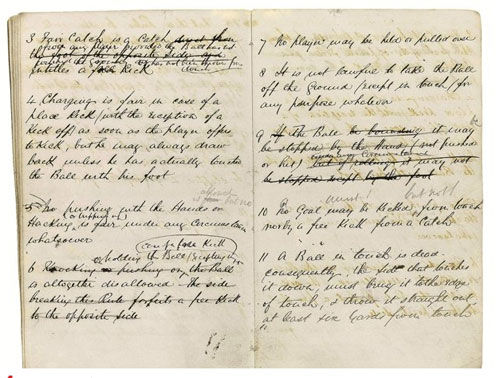 3 Fair Catch is a Catch direct from
from any player provided the Ball has not
the foot of the opposite side and
touched the ground or has not been thrown from
entitles a free kick touch
4 Charging is fair in case of a
place kick (with the exception of a
Kick off) as soon as the player offers
to kick, but he may always draw
back unless he has actually touched
the Ball with his foot.
5 No pushing with the Hands or
Hacking, is fair under any circumstances
or tripping up
whatsoever
holding the Ball
6 Knocking or pushing on the Ball
is altogether disallowed. The side
breaking this Rule forfeits a free kick
to the opposite side
7 No player may be held or pulled over
8 It is not lawful to take the Ball
off the Ground (except in touch) for
any purpose whatever
9 If the Ball be bounding it may be
be stopped by the Hand (not pushed
or hit) but if rolling it may not
be stopped except by the foot
but not
10 No Goal may be kicked from touch
nor by a free kick from a catch
11 A Ball in touch is dead
consequently, the side that touches
it down, must bring it to the edge
of touch, & throw it straight out
at least six yards from touch